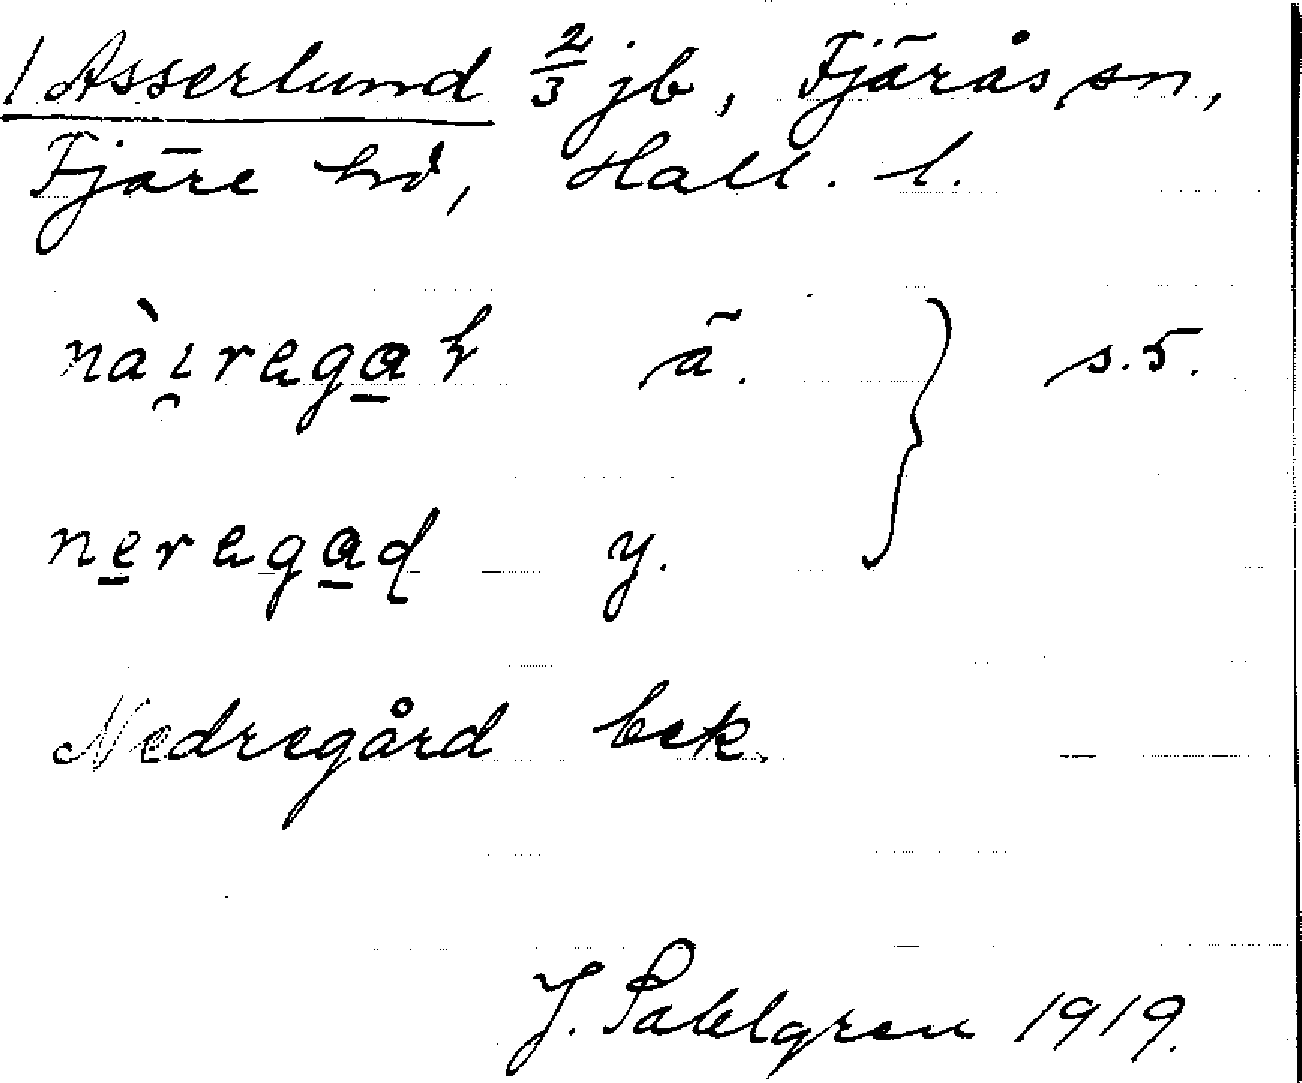 1 Asserlund 2/3 jb, Fjärås sn,
Fjäre hd, Hall. l.
nài̯regaɽ ä. s. 5.
neregaɖ y.
Nedregård bek.
J. Sahlgren 1919.